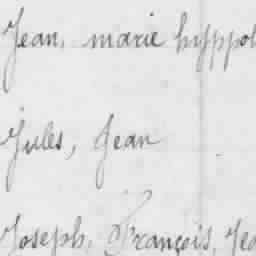 Jean, marie hyppol
Jules, Jean
Joseph, François, Jea